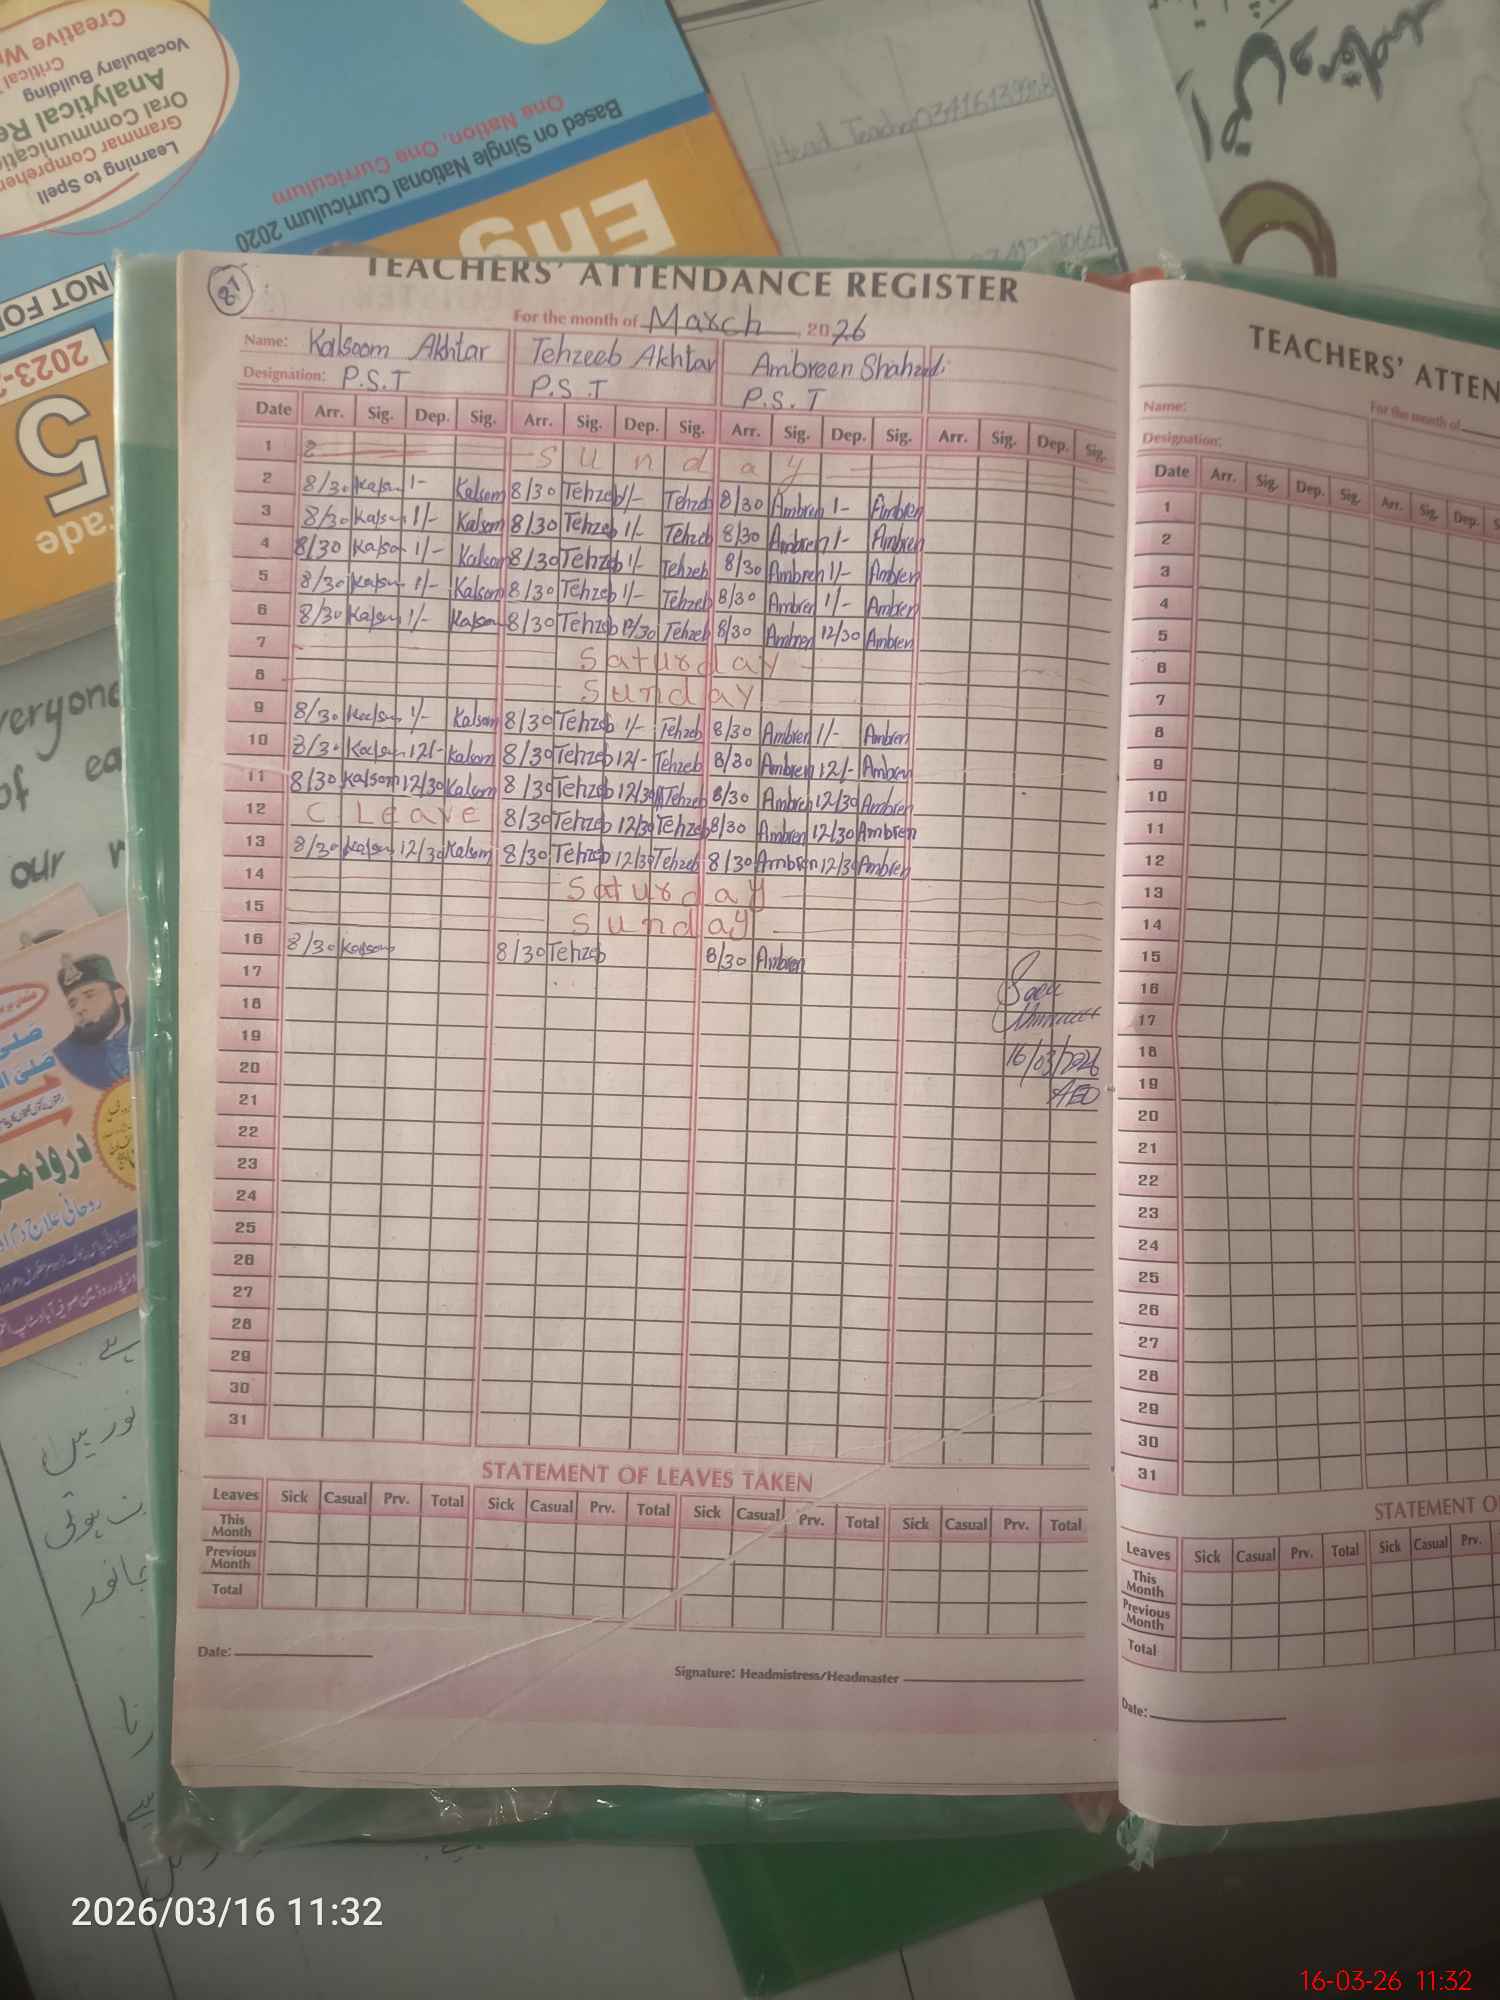 Creative
Vocabulary Building
Critical
Analytical Re
Oral Communication
Grammar Comprehen
Learning to Spell
Based on Single National Curriculum 2020
One Nation, One Curriculum
Eng
NOT FO
2023-2
5
rade
Head Teacher 03416139
veryone
of ea
our
TEACHERS' ATTENDANCE REGISTER
For the month of March, 2026
Name: Kalsoom Akhtar Tehzeeb Akhtar Ambreen Shahzadi
Designation: P.S.T P.S.T P.S.T
Date Arr. Sig. Dep. Sig. Arr. Sig. Dep. Sig. Arr. Sig. Dep. Sig. Arr. Sig. Dep. Sig.
1 Sunday
2 8/30 Kalsom 1- Kalsom 8/30 Tehzeb 1/- Tehzeb 8/30 Ambren 1- Ambren
3 8/30 Kalsom 1/- Kalsom 8/30 Tehzeb 1/- Tehzeb 8/30 Ambren 1- Ambren
4 8/30 Kalsom 1/- Kalsom 8/30 Tehzeb 1/- Tehzeb 8/30 Ambren 1/- Ambren
5 8/30 Kalsom 1/- Kalsom 8/30 Tehzeb 1/- Tehzeb 8/30 Ambren 1/- Ambren
6 8/30 Kalsom 1/- Kalsom 8/30 Tehzeb 12/30 Tehzeb 8/30 Ambren 12/30 Ambren
7 Saturday
8 Sunday
9 8/30 Kalsom 1/- Kalsom 8/30 Tehzeb 1/- Tehzeb 8/30 Ambren 1/- Ambren
10 8/30 Kalsom 12/- Kalsom 8/30 Tehzeb 12/- Tehzeb 8/30 Ambren 12/- Ambren
11 8/30 Kalsom 12/30 Kalsom 8/30 Tehzeb 12/30 Tehzeb 8/30 Ambren 12/30 Ambren
12 C Leave 8/30 Tehzeb 12/30 Tehzeb 8/30 Ambren 12/30 Ambren
13 8/30 Kalsom 12/30 Kalsom 8/30 Tehzeb 12/30 Tehzeb 8/30 Ambren 12/30 Ambren
14 Saturday
15 Sunday
16 8/30 Kalsom 8/30 Tehzeb 8/30 Ambren
17
18
19
20
21
22
23
24
25
26
27
28
29
30
31
16/03/2026
AEO
STATEMENT OF LEAVES TAKEN
Leaves Sick Casual Prv. Total Sick Casual Prv. Total Sick Casual Prv. Total Sick Casual Prv. Total
This Month
Previous Month
Total
Date:
Signature: Headmistress/Headmaster
TEACHERS' ATTEN
For the month of
Name:
Designation:
Date Arr. Sig. Dep. Sig. Arr. Sig. Dep. S
1
2
3
4
5
6
7
8
9
10
11
12
13
14
15
16
17
18
19
20
21
22
23
24
25
26
27
28
29
30
31
STATEMENT O
Leaves Sick Casual Prv. Total Sick Casual Prv.
This Month
Previous Month
Total
Date:
درود
روحانی علاج
جانور
2026/03/16 11:32
16-03-26 11:32